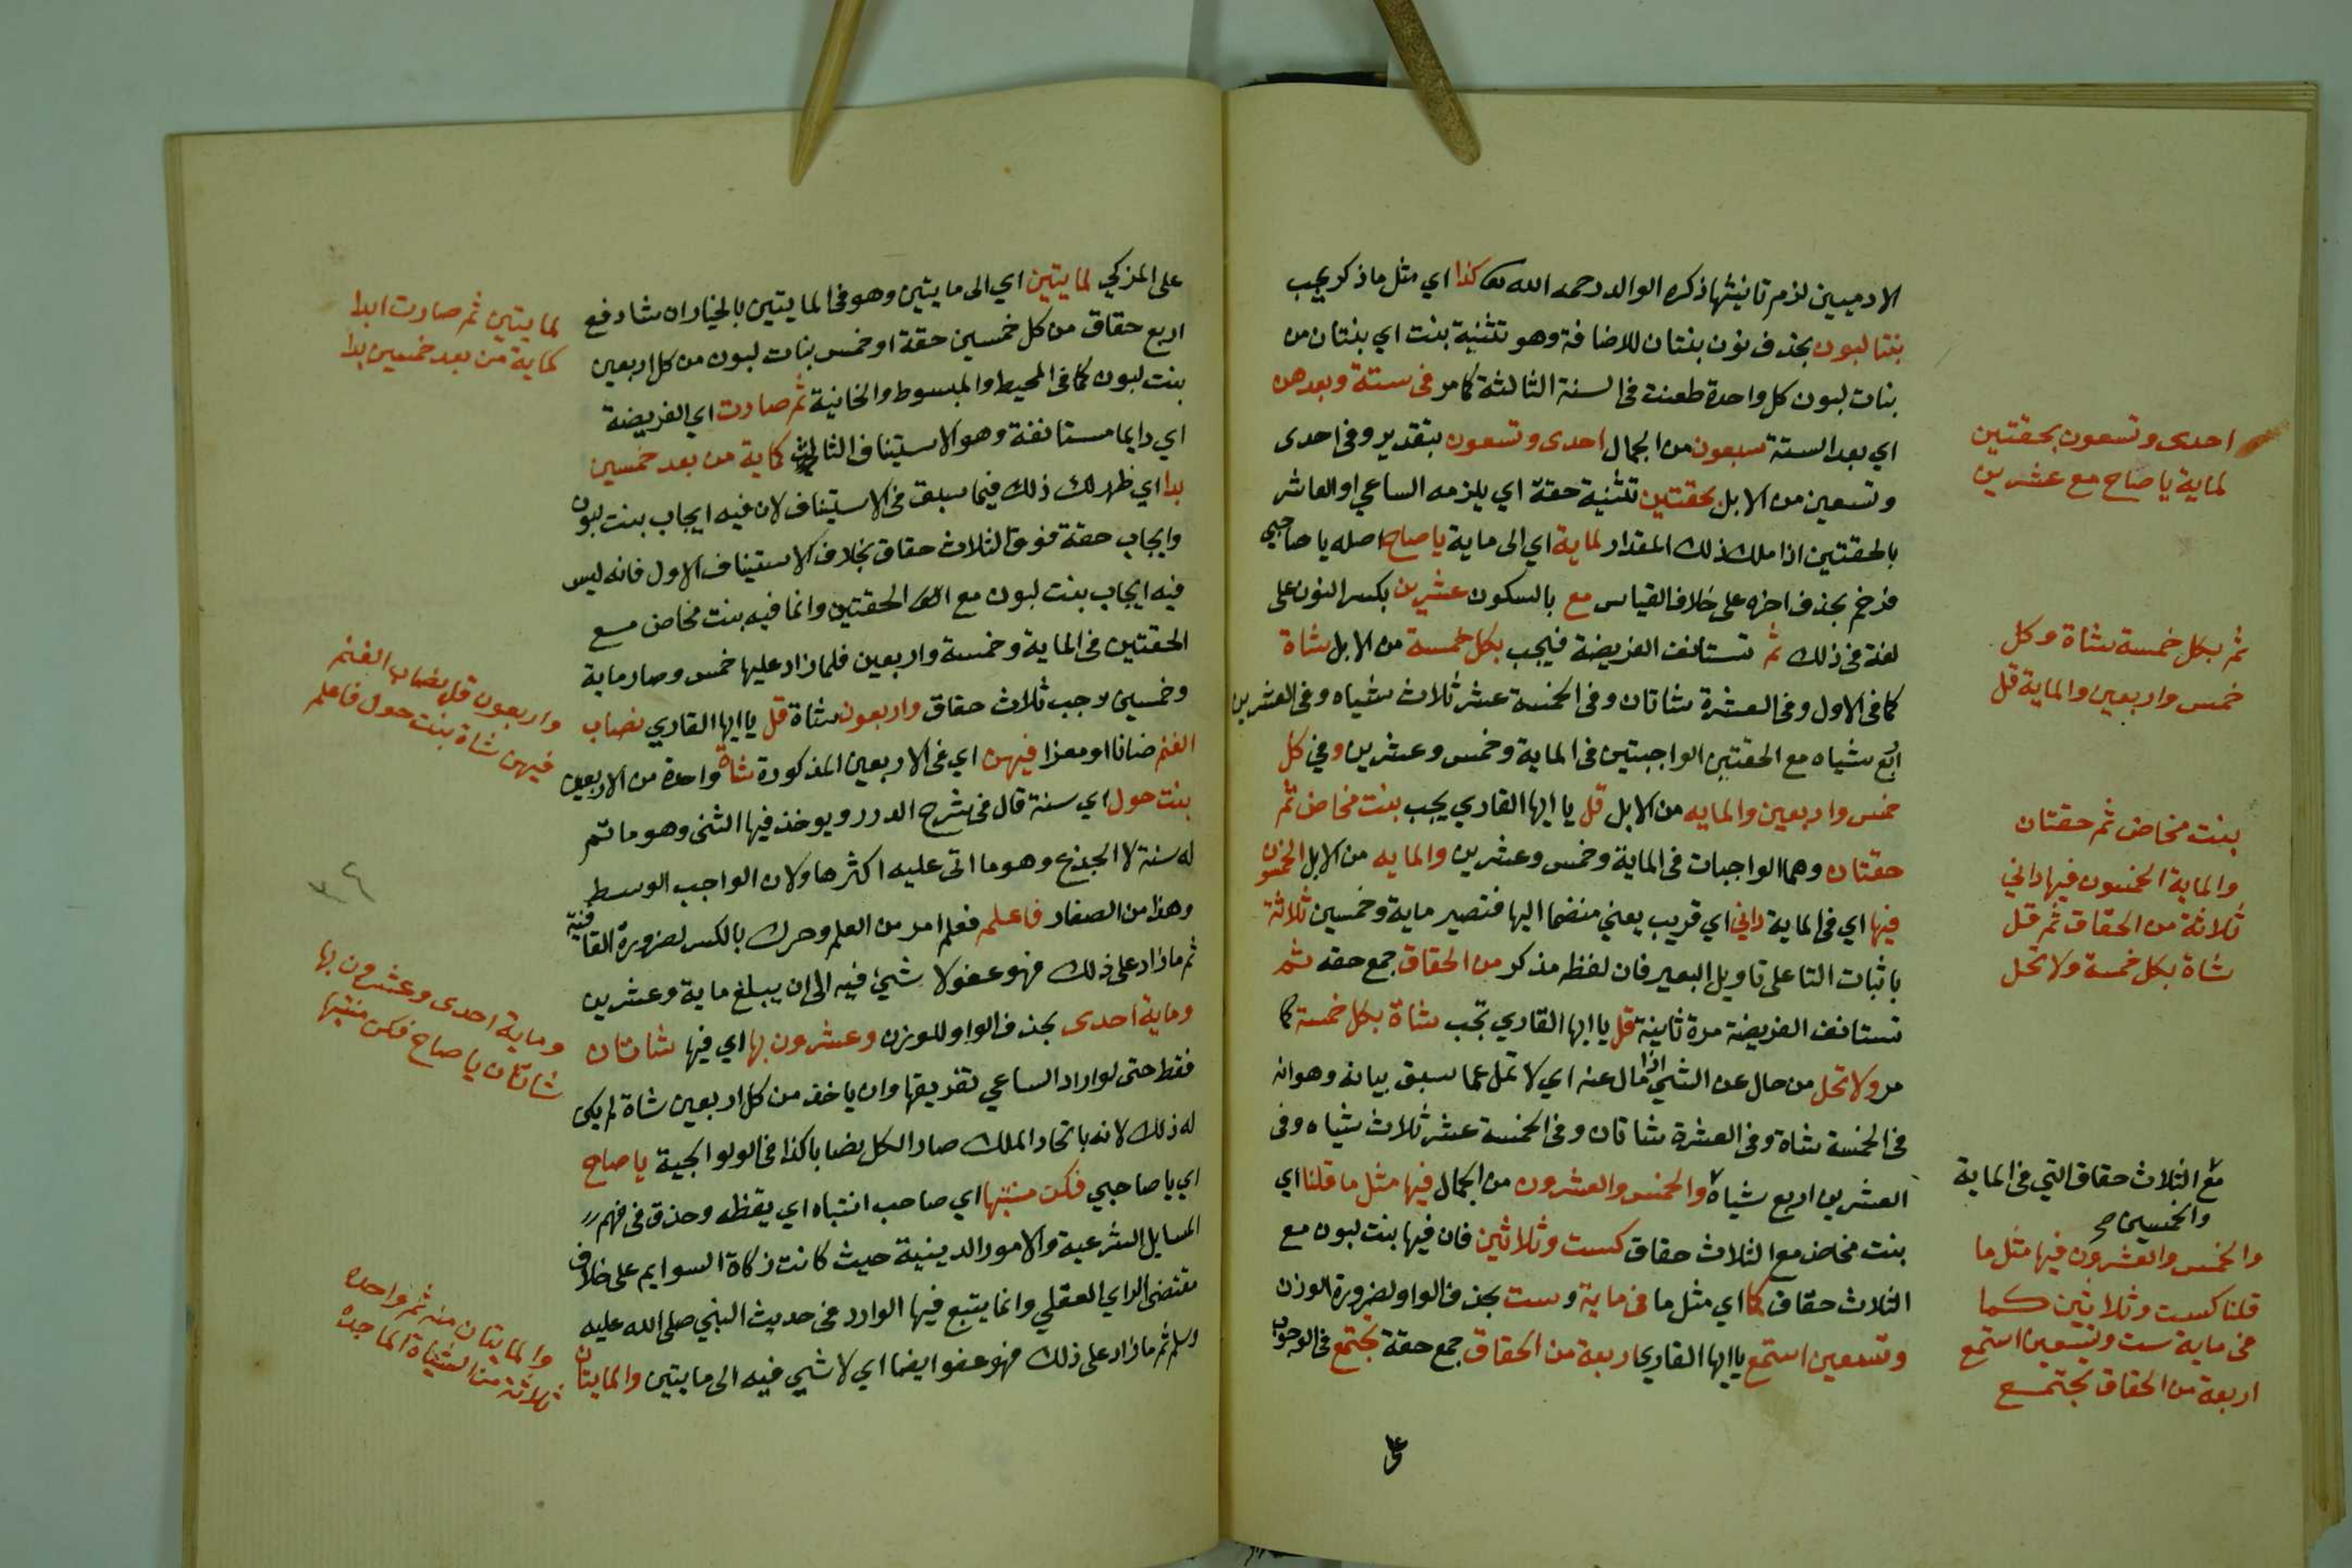 الادميين لزم تانيثها ذكره الوالد رحمه الله كذا اي مثل ما ذكر يجب
بنتا لبون بحذف نون بنتان للاضافة وهو تثنية بنت اي بنتان من
بنات لبون كل واحدة طعنت فى السنة الثالثة كما مر فى ستة وبعد هن
اي بعد الستة سبعون من الجمال احدى وتسعون بتقدير وفى احدى
وتسعين من الابل بحقتين تثنية حقة اي يلزمه الساعي او العاشر
بالحقتين اذا ملك ذلك المقدار لماية اي الى ماية يا صاح اصله يا صاحبي
فرخم بحذف اخره على خلاف القياس مع بالسكون عشرين بكسر النون على
لغة فى ذلك ثم تستانف الفريضة فيجب بكل خمسة من الابل شاة
كما فى الاول وفى العشرة شاتان وفى الخمسة عشر ثلاث شياه وفى العشرين
اربع شياه مع الحقتين الواجبتين فى الماية وخمس وعشرين وفي كل
خمس واربعين والمايه من الابل قل يا ايها القاري يجب بنت مخاض ثم
حقتان وهما الواجبات فى الماية وخمس وعشرين والمايه من الابل الخمسون
فيها اي فى الماية داني اي قريب يعني منضما اليها فتصير ماية وخمسين ثلاثة
باثبات التا على تاويل البعير فان لفظه مذكر من الحقاق جمع حقه ثم
تستانف الفريضة مرة ثانية قل يا ايها القاري تجب شاة بكل خمسة كما
مر ولا تحل من حال عن الشي اذا مال عنه اي لا تمل عما سبق بيانه وهو انه
فى الخمسة شاة وفى العشرة شاتان وفى الخمسة عشر ثلاث شياه وفى
العشرين اربع شياه والخمس والعشرون من الجمال فيها مثل ما قلنا اي
بنت مخاض مع الثلاث حقاق كست وثلاثين فان فيها بنت لبون مع
الثلاث حقاق كما اي مثل ما فى ماية وست بحذف الواو لضرورة الوزن
وتسعين استمع يا ايها القاري اربعة من الحقاق جمع حقة تجتمع فى الوجوب
على
احدى وتسعون بحقتين
لماية يا صاح مع عشرين
ثم بكل خمسة شاة وكل
خمس واربعين والماية قل
بنت مخاض ثم حقتان
والماية الخمسون فيها داني
ثلاثة من الحقاق ثم قل
شاة بكل خمسة ولا تحل
مع الثلاث حقاق التي فى الماية
والخمسين صح
والخمس والعشرون فيها مثل ما
قلنا كست وثلاثين كما
فى ماية ست وتسعين استمع
اربعة من الحقاق تجتمع
على المزكي لمايتين اي الى مايتين وهو فى المايتين بالخيار ان شا دفع
اربع حقاق من كل خمسين حقة او خمس بنات لبون من كل اربعين
بنت لبون كما فى المحيط والمبسوط والخانية ثم صارت اي الفريضة
اي دايما مستانفة وهو الاستيناف الثالث كماية من بعد خمسين
بدا اي ظهر لك ذلك فيما سبق فى الاستيناف لان فيه ايجاب بنت لبون
وايجاب حقة فوق الثلاث حقاق بخلاف الاستيناف الاول فانه ليس
فيه ايجاب بنت لبون مع الحقتين وانما فيه بنت مخاض مع
الحقتين فى الماية وخمسة واربعين فلما زاد عليها خمس وصار ماية
وخمسين وجب ثلاث حقاق واربعون شاة قل يا ايها القاري نصاب
الغنم ضانا او معزا فيهن اي فى الاربعين المذكورة شاة واحدة من الاربعين
بنت حول اي سنة قال فى شرح الدرر ويوخذ فيها الثنى وهو ما تم
له سنة لا الجذع وهو ما اتى عليه اكثرها ولان الواجب الوسط
وهذا من الصغار فاعلم فعل امر من العلم وحرك بالكسر لضرورة القافية
ثم ما زاد على ذلك فهو عفو لا شيء فيه الى ان يبلغ ماية وعشرين
وماية احدى بحذف الواو للوزن وعشرون بها اي فيها شاتان
فقط حتى لو اراد الساعي تفريقها وان ياخذ من كل اربعين شاة لم يكن
له ذلك لانه باتحاد الملك صار الكل نصابا كذا فى الولوالجية يا صاح
اي يا صاحبي فكن منتبها اي صاحب انتباه اي يقظه وحذق فى فهم
المسايل الشرعية والامور الدينية حيث كانت زكاة السوايم على خلاف
مقتضى الراي العقلي وانما يتبع فيها الوارد فى حديث النبي صلى الله عليه
وسلم ثم ما زاد على ذلك فهو عفو ايضا اي لا شيء فيه الى مايتين والمايتان
لمايتين ثم صارت ابدا
كماية من بعد خمسين بدا
واربعون قل نصاب الغنم
فيهن شاة بنت حول فاعلم
وماية احدى وعشرون بها
شاتان يا صاح فكن منتبها
والمايتان منه ثم واحده
ثلاثة من الشياة الماجده